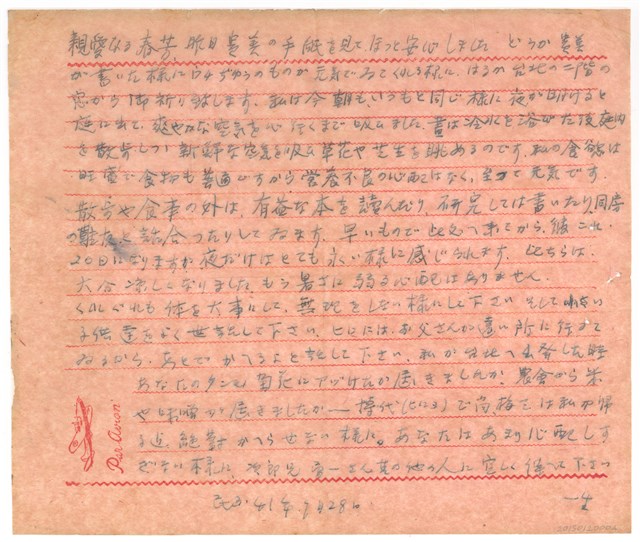 親愛なる春芳、昨日貴美の手紙を見て、ほっと安心しました どうか貴美
が書いた様に口々ぢゆうのものが元気でゐてくれる様に、はるか台北の二階の
窓から御祈り致します。私は今朝も、いつもと同じ様に夜が明けると
庭に出て、爽やかな空気を心行くまで吸ひました、昔は冷水を浴びた後庭内
を散歩しつゝ新鮮な空気を吸ひ草花や芝生を眺めるのです、私の食慾は
旺盛で食物も普通ですから営養不良の心配はなく、至って元気です。
散歩や食事の外は、有益な本を読んだり、研究しては書いたり、同房
の難友と話合つたりしてゐます、早いもので此処へ来てから、彼これ
20日になりますが夜だけはとても永い様に感じられます、此ちらは
大分涼しくなりました、もう暑さに弱る心配はありません、
くれぐれも体を大事にして、無理をしない様にして下さい そして小さい
子供達をよく世話して下さい、ヒロには、お父さんが遠い所に行って
ゐるから、あとでかへるよと話して下さい、私が台北へ出発した時
あなたのタンを 菊花にアづけたが届きましたか、農会から米
や味噌が届きましたか— 時代 で尚梅をは私が帰
る迄、絶対かへらせない様に。あなたはあまり心配しす
ぎない様に、次郎兄 吾一さん其の他の人に宜しく伝へて下さい
民国41年9月28日 一生
Par Avion